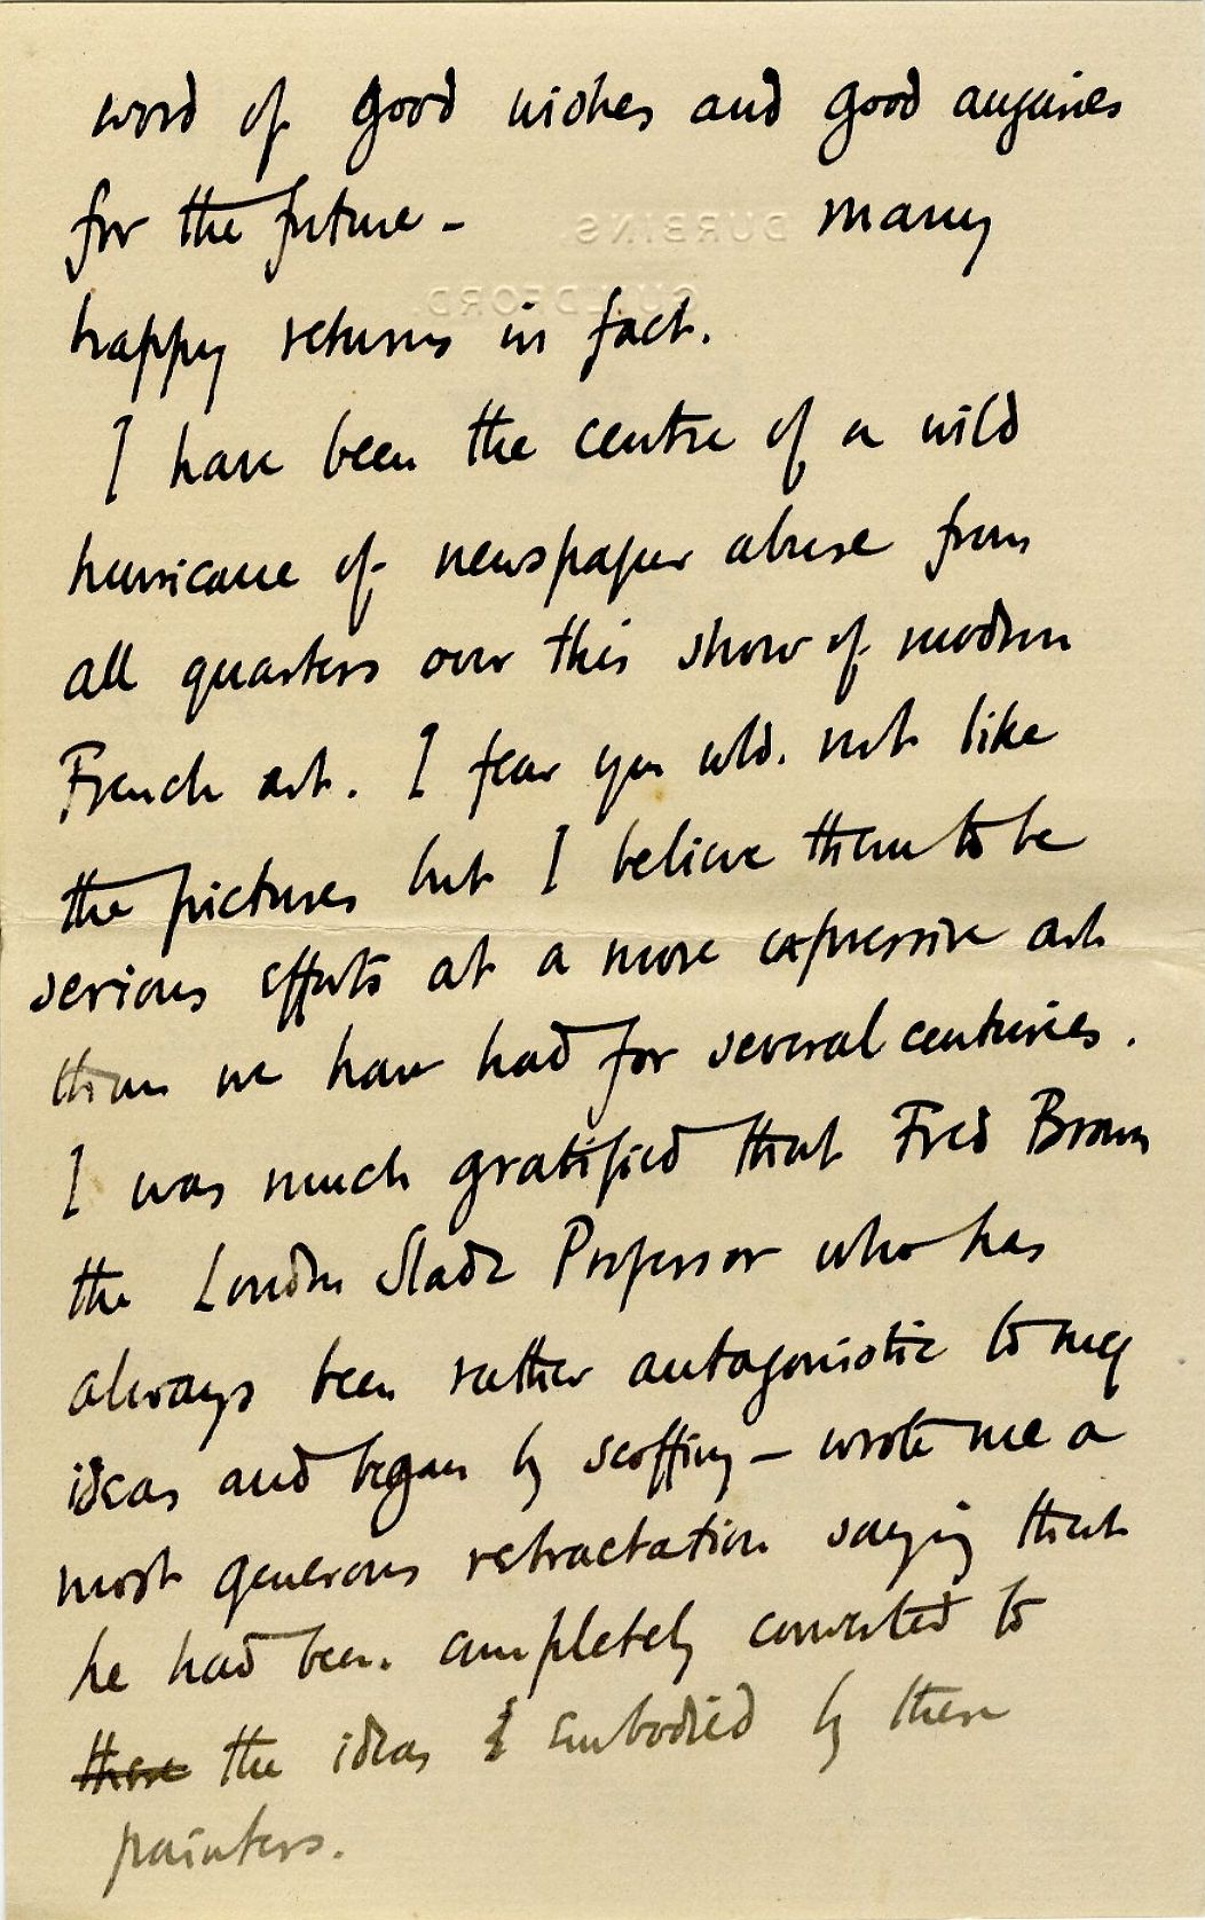 word of good wishes and good auguries
for the future – many
DURBINS
GUILDFORD.
happy returns in fact.
I have been the centre of a wild
hurricane of newspaper abuse from
all quarters over this show of modern
French art. I fear you wld. not like
the pictures but I believe them to be
serious efforts at a more expressive art
than we have had for several centuries.
I was much gratified that Fred Brown
the London Slade Professor who has
always been rather antagonistic to my
ideas and began by scoffing – wrote me a
most generous retractation saying that
he had been completely converted to
those the ideas & embodied by these
painters.